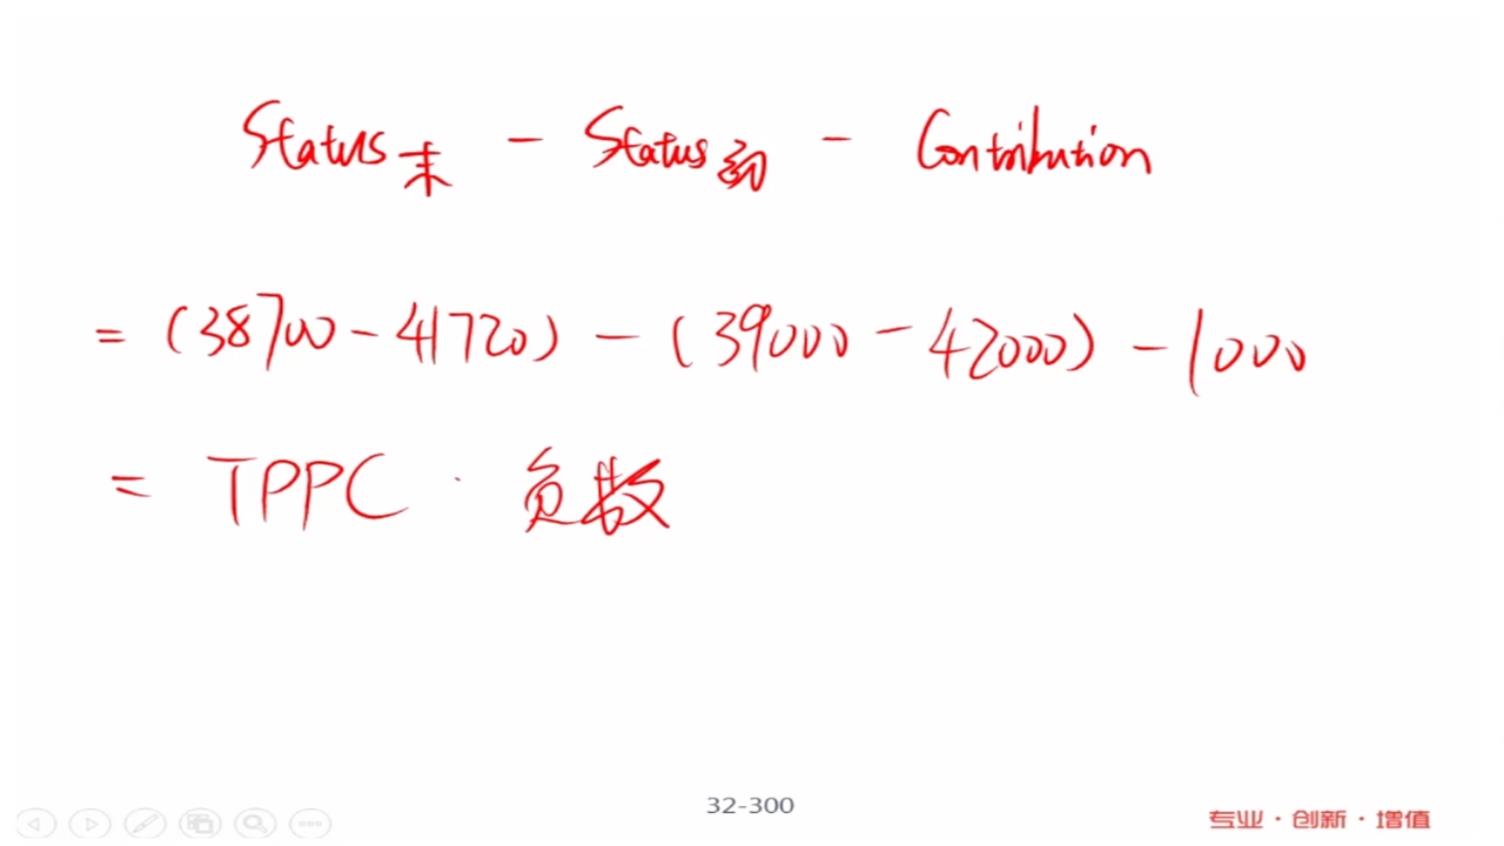 Status末 - Status初 - Contribution
= (38700 - 41720) - (39000 - 42000) - 1000
= TPPC · 负数
32-300
专业·创新·增值